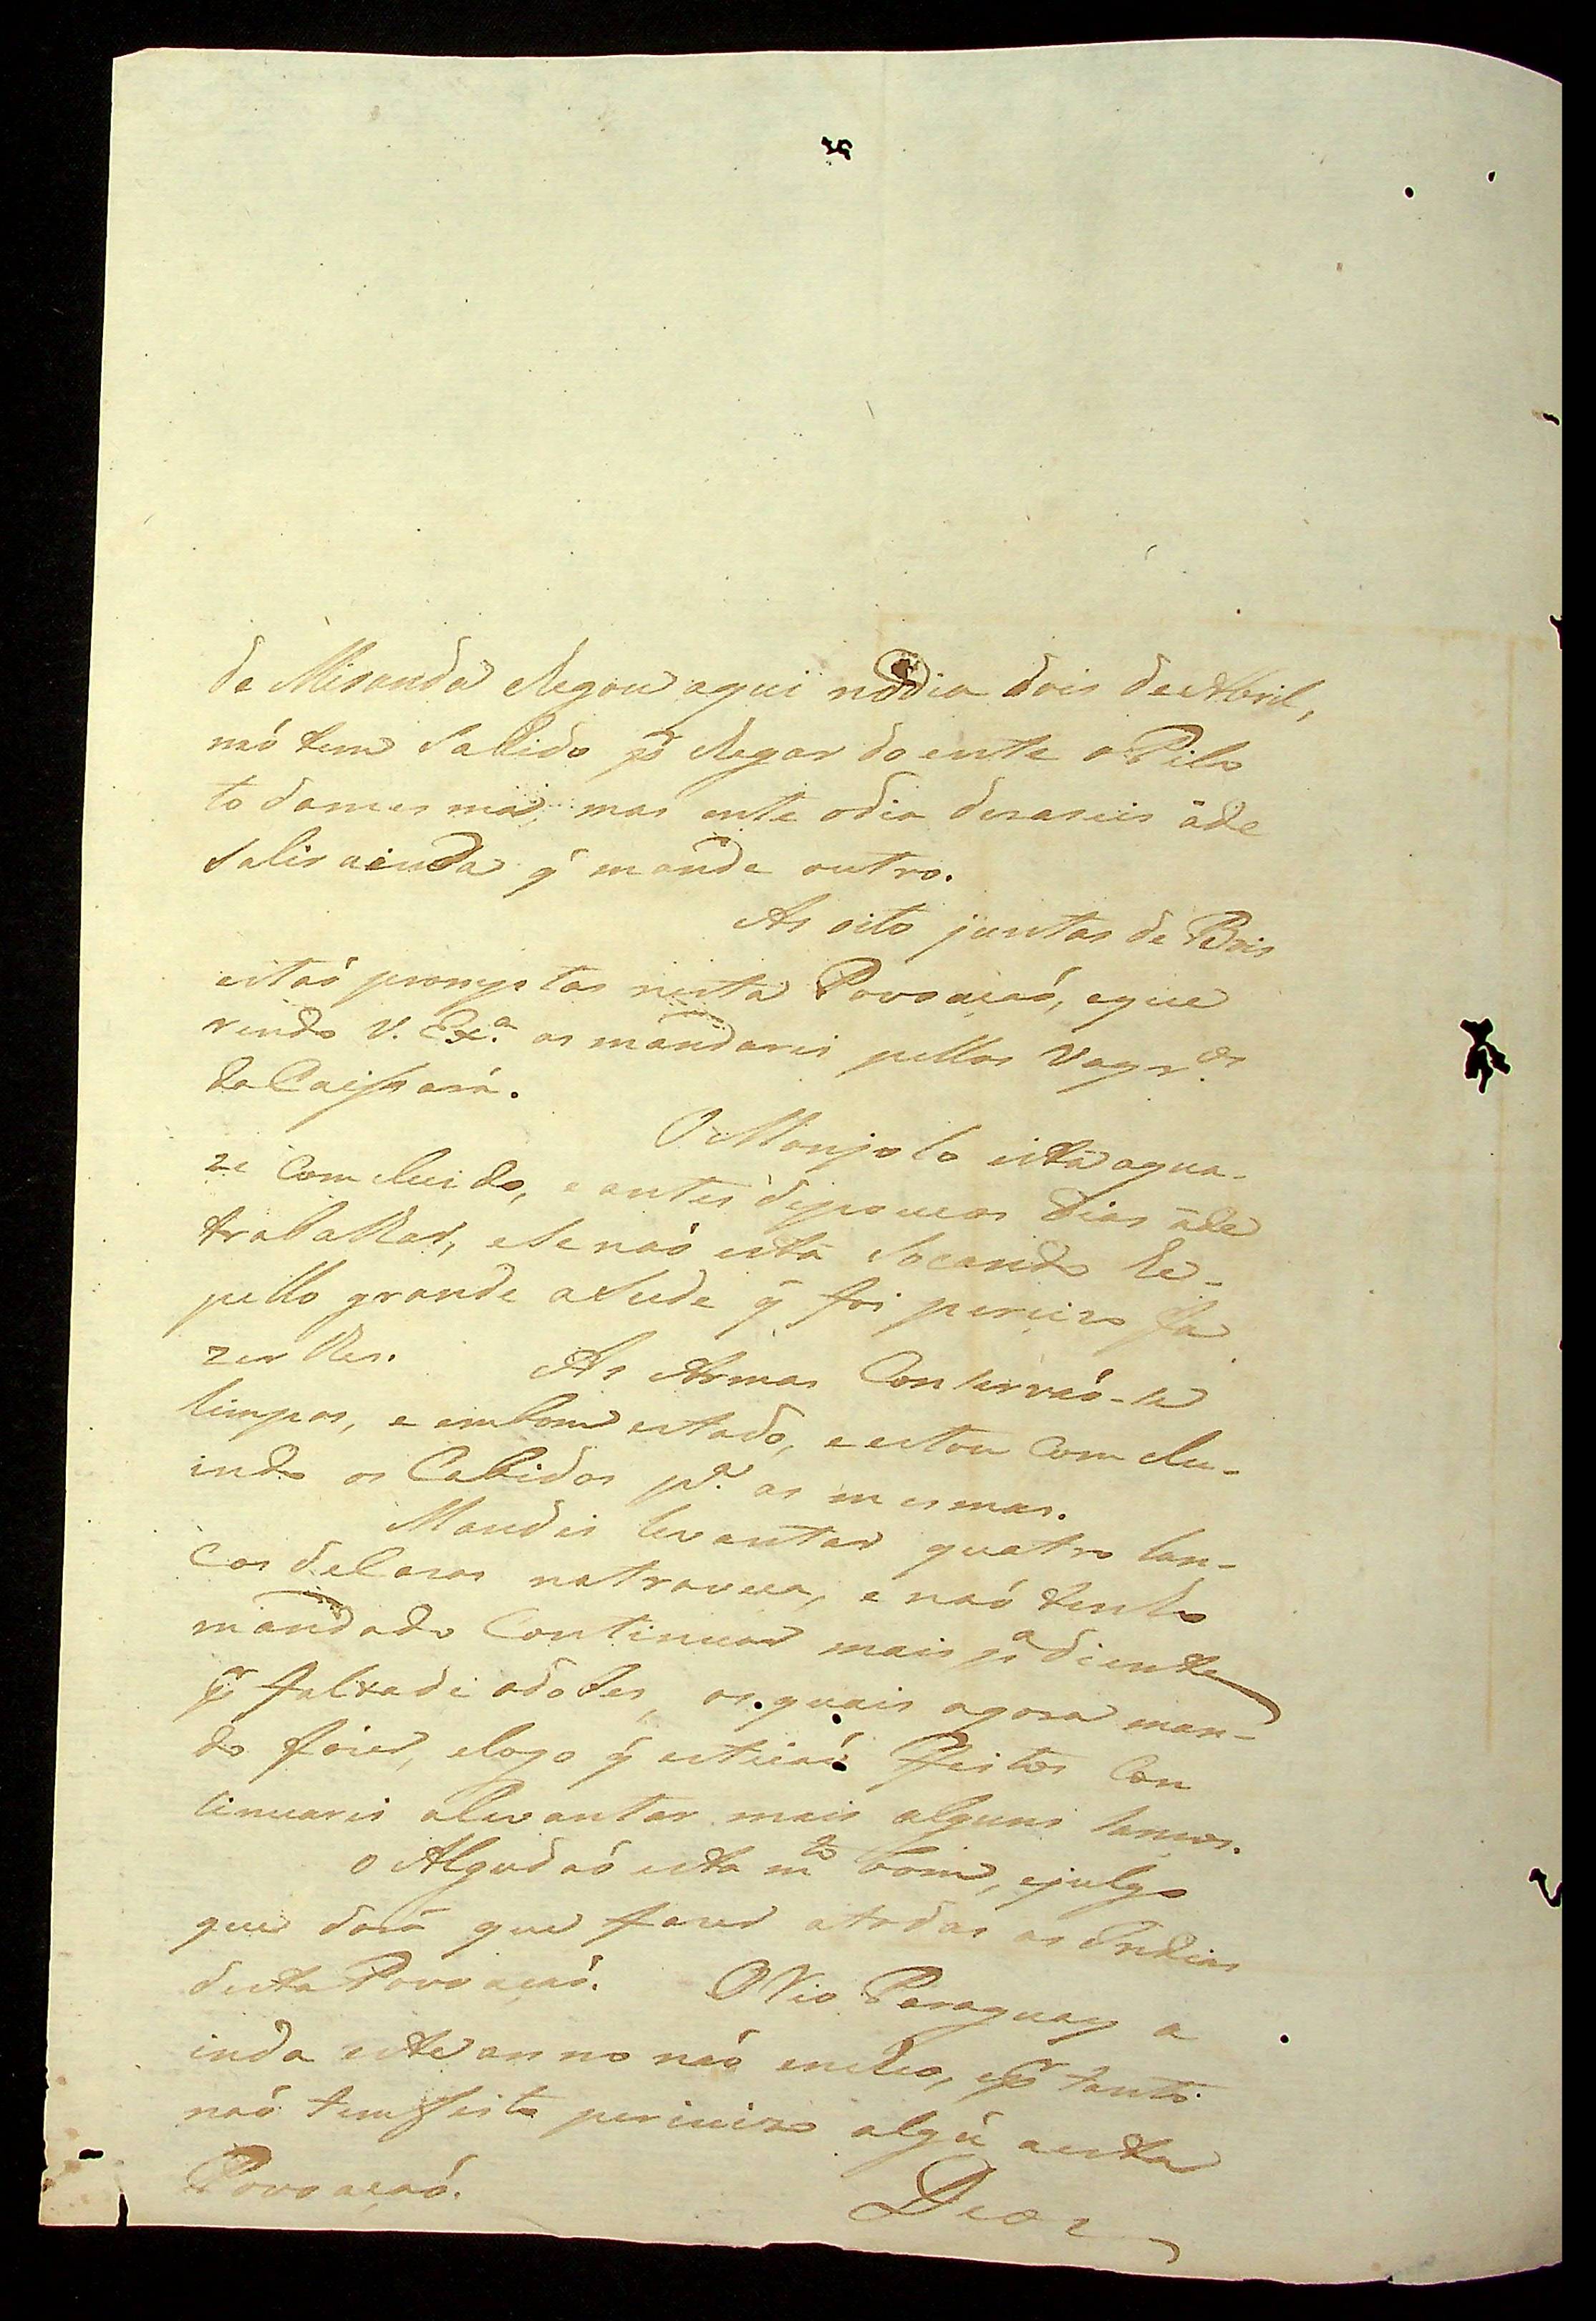 de Miranda chegou aqui nodia dois de Abril,
naó tem Sahido pr chegar doente o Pilo
to damesma, mas ante odia desaseis áde
Sahir ainda q̃ mande outro.
As oito juntas de Bois
estaó promptas nesta Povoacaó, eque
rendo V. Exª. as mandarei pellos Vagros
da Caissara.
O Monjolo está aqua-
ze Comcluido, e antes depoucos dias áde
trabalhar, eSenaó está Socando hé-
pello grande asude q̃ foi percizo fa
zerlhes. As Armas Conservaó-se
limpas, e embom estado, eestou Comclu-
indo os Cabidos pª. as mesmas.
Mandei levantar quatro lan-
cos deCasas natraveca, e naó tenho
mandado Continuar mais pª diente
pr faltade adobes, os quais agora man-
do fazer, elogo q̃ estejaó ffeitos Con
tinuarei alevantar mais alguns lancos.
o Algodaó esta mto bom, ejulgo
que dará que fazer atodas as Indias
desta Povoacaó. O Rio Paraguay a
inda este anno naó encheo, epr tanto
naó tem feito perjuizo algũ aesta
Povoacaó.
Deos